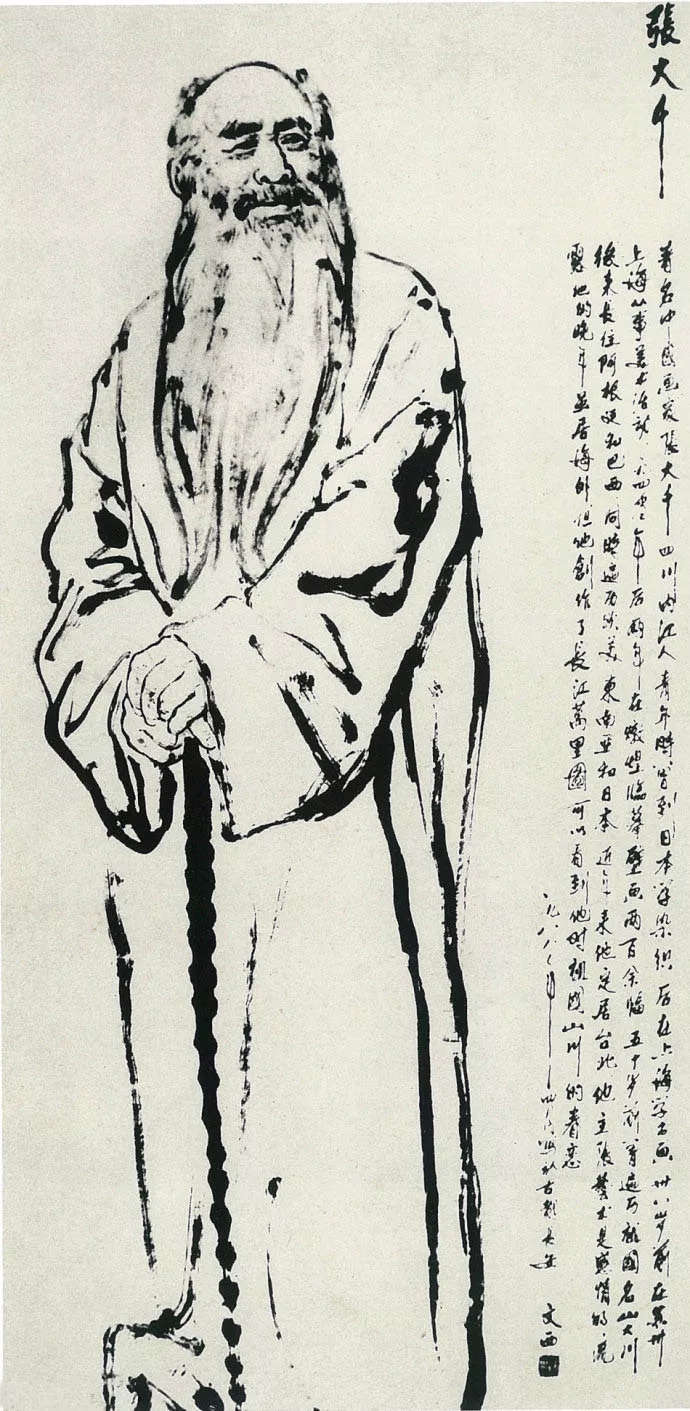 張大千
著名中国画家張大千四川内江人青年時曾到日本学染织后在上海学古画卅八岁前在蘇州
上海从事美术活动一九四〇年后两年在燉煌临摹壁画两百余幅五十岁前曾遍历祖國名山大川
後来長住阿根廷和巴西同時遍历欧美東南亚和日本近年来他定居台北他主張藝术是感情的流
露他的晚年並居海外但他創作了長江萬里圖可以看到他对祖國山川的眷恋
於古都長安
文西